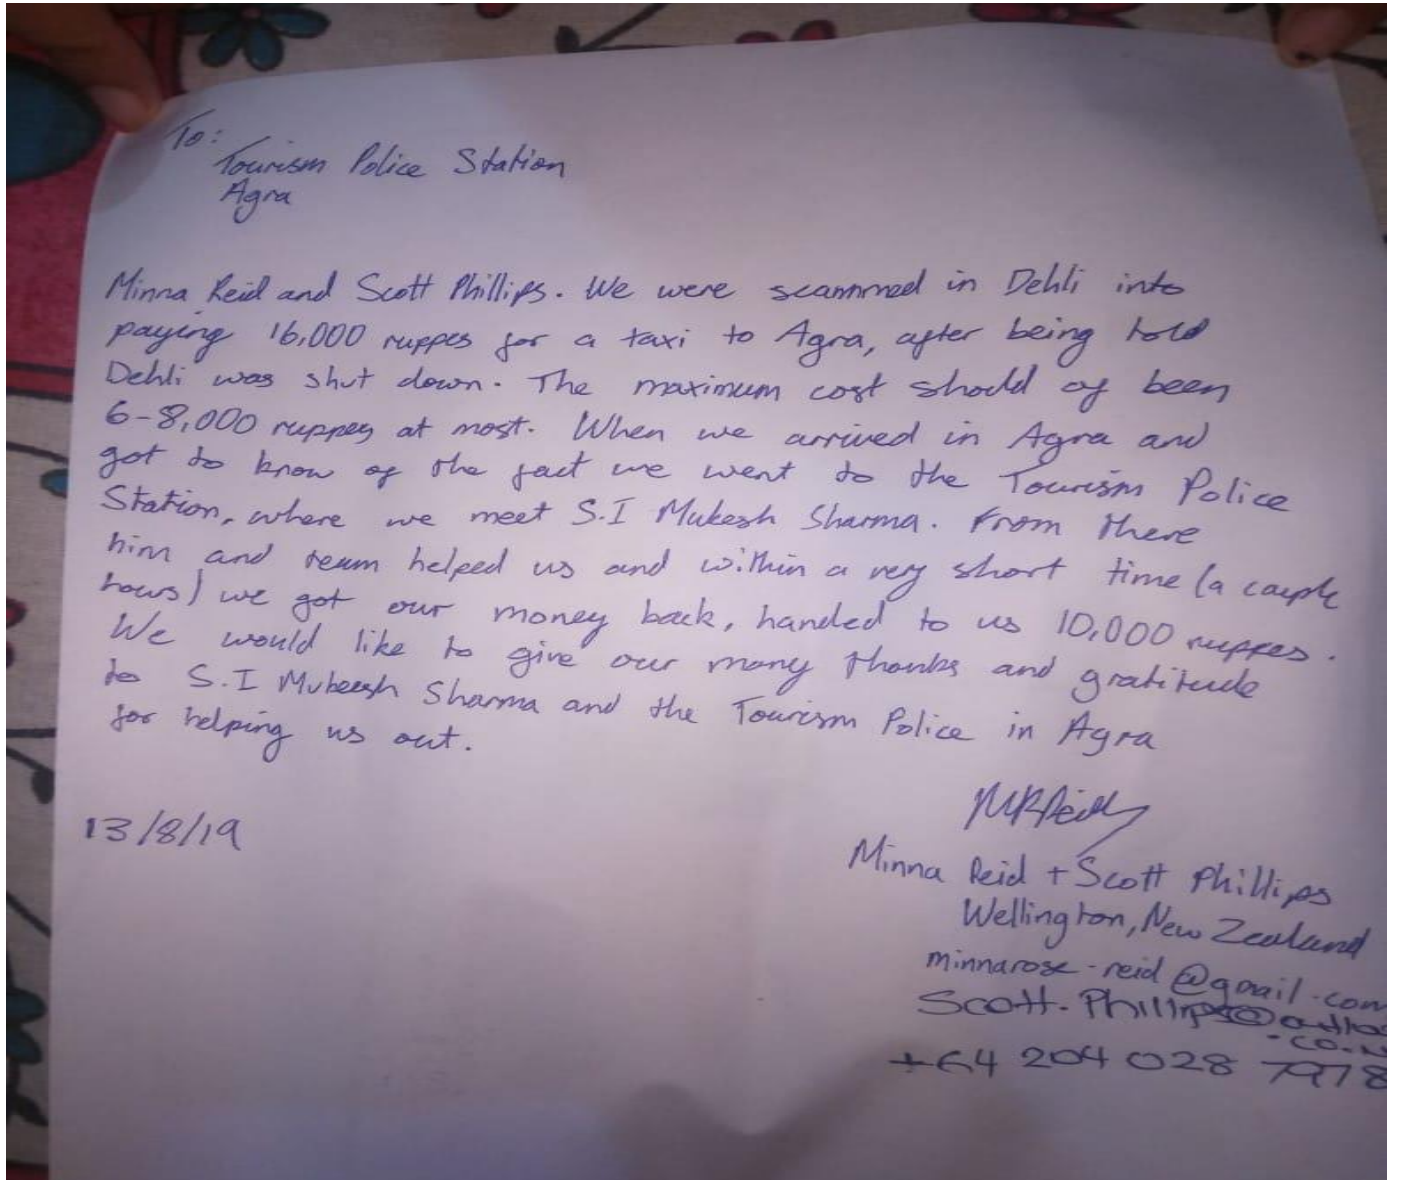 To:
Tourism Police Station
Agra
Minna Reid and Scott Phillips. We were scammmed in Dehli into
paying 16,000 ruppes for a taxi to Agra, after being told
Dehli was shut down. The maximum cost should of been
6-8,000 ruppes at most. When we arrived in Agra and
got to know of the fact we went to the Tourism Police
Station, where we meet S.I Mukesh Sharma. From there
him and team helped us and within a very short time (a couple
hours) we got our money back, handed to us 10,000 ruppes.
We would like to give our many thanks and gratitude
to S.I Mukeesh Sharma and the Tourism Police in Agra
for helping us out.
13/8/19
Minna Reid + Scott Phillips
Wellington, New Zealand
minnarose-reid@gmail.com
Scott.Phillips@
+64 204 028 7978